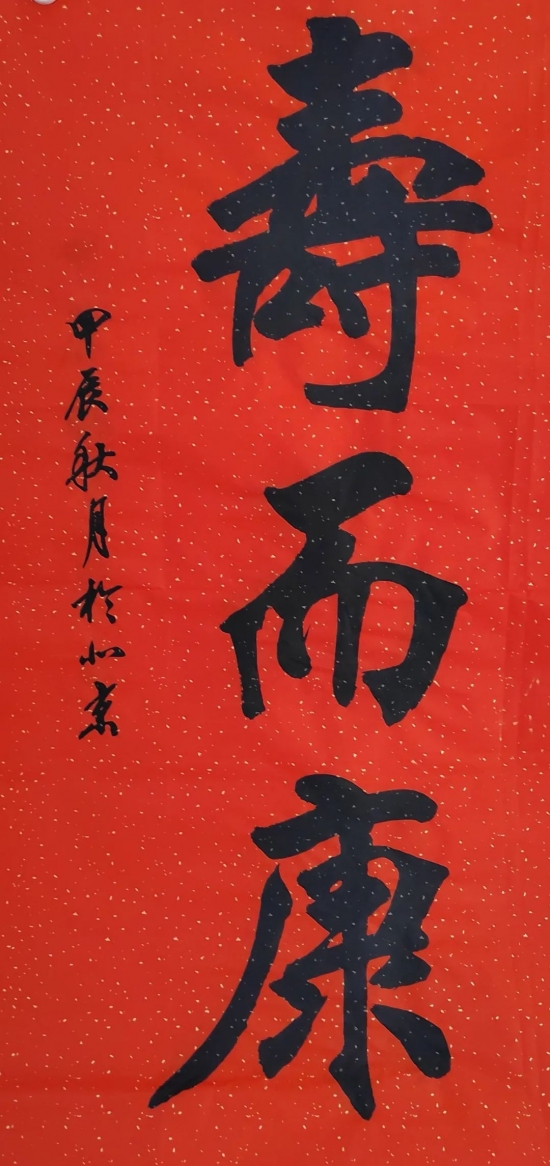 壽而康
甲辰秋月於北京